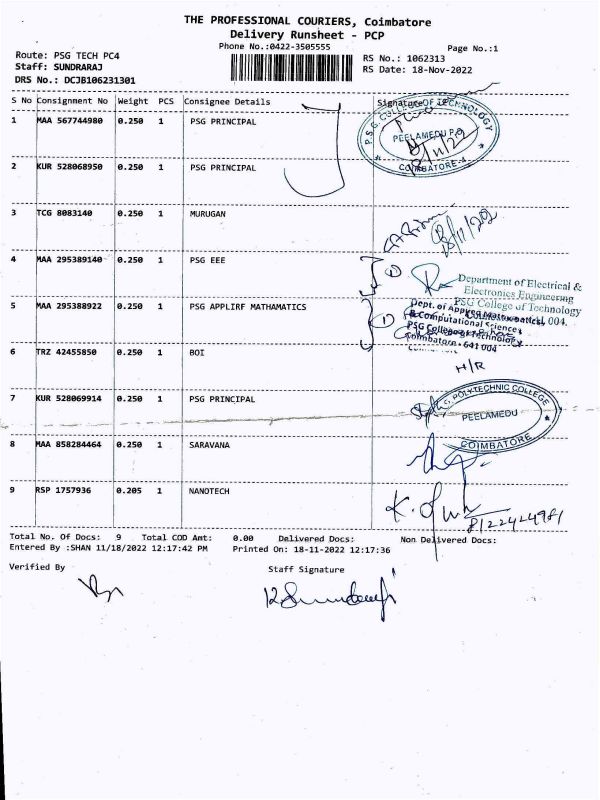 THE PROFESSIONAL COURIERS, Coimbatore
Delivery Runsheet - PCP
Phone No.:0422-3505555
Page No.:1
Route: PSG TECH PC4
RS No.: 1062313
Staff: SUNDRARAJ
RS Date: 18-Nov-2022
DRS No.: DCJB106231301
S No Consignment No Weight PCS Consignee Details Signature
1 MAA 567744980 0.250 1 PSG PRINCIPAL
P.S.G. COLLEGE OF TECHNOLOGY
PEELAMEDU P.O
18/11/22
COIMBATORE-4
2 KUR 528068950 0.250 1 PSG PRINCIPAL
3 TCG 8083140 0.250 1 MURUGAN
18/11/202
4 MAA 295389140 0.250 1 PSG EEE
Department of Electrical &
Electronics Engineering
PSG College of Technology
641 004.
5 MAA 295388922 0.250 1 PSG APPLIRF MATHAMATICS
Dept. of Applied Mathematics
& Computational Sciences
PSG College of Technology
Coimbatore - 641 004
6 TRZ 42455850 0.250 1 BOI
H/R
7 KUR 528069914 0.250 1 PSG PRINCIPAL
POLYTECHNIC COLLEGE
PEELAMEDU
COIMBATORE
8 MAA 858284464 0.250 1 SARAVANA
9 RSP 1757936 0.205 1 NANOTECH
Total No. Of Docs: 9 Total COD Amt: 0.00 Delivered Docs: Non Delivered Docs:
Entered By :SHAN 11/18/2022 12:17:42 PM Printed On: 18-11-2022 12:17:36
Verified By Staff Signature